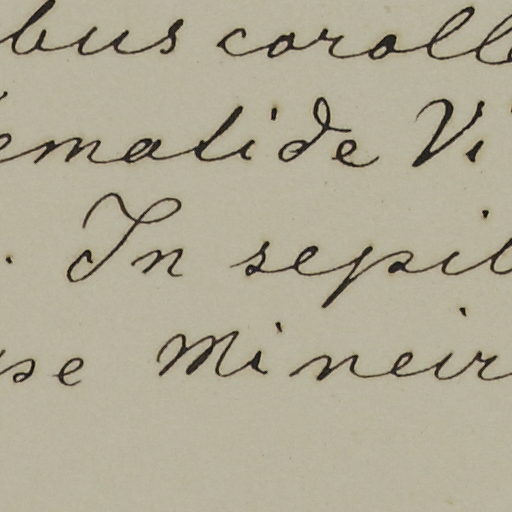 bus coroll
ematide Vi
. In sepi
se Mineir